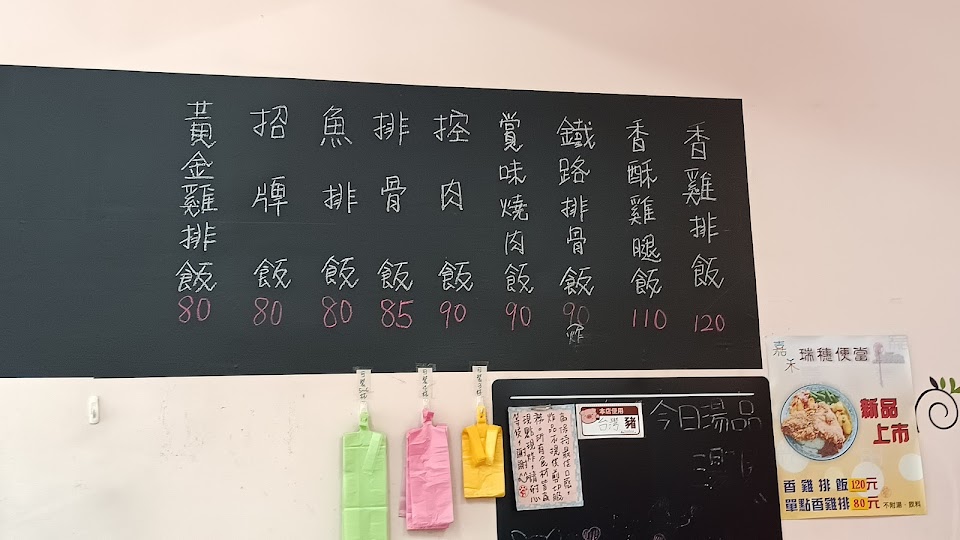 香雞排飯
120
香酥雞腿飯
110
鐵路排骨飯
90
炸
賞味燒肉飯
90
控肉飯
90
排骨飯
85
魚排飯
80
招牌飯
80
黃金雞排飯
80
本店使用
台灣豬
今日湯品
嘉禾
瑞穗便當
新品
上市
香雞排飯120元
單點香雞排80元
不附湯、飲料